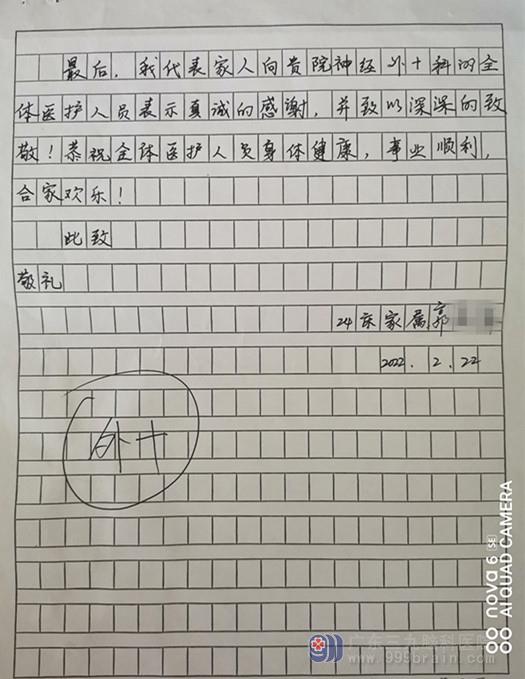 最后，我代表家人向贵院神经外十科的全
体医护人员表示真诚的感谢，并致以深深的致
敬！恭祝全体医护人员身体健康，事业顺利，
合家欢乐！
此致
敬礼
24床家属郭
2022.2.22
外十
nova 6 SE
AI QUAD CAMERA
广东三九脑科医院
www.999brain.com